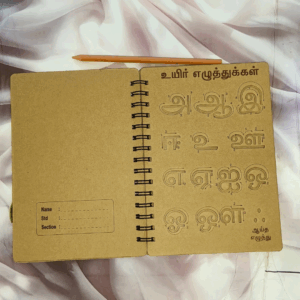 Name :
Std :
Section :
உயிர் எழுத்துக்கள்
அ ஆ இ
ஈ உ ஊ
எ ஏ ஐ ஒ
ஓ ஔ ஃ
ஆய்த
எழுத்து